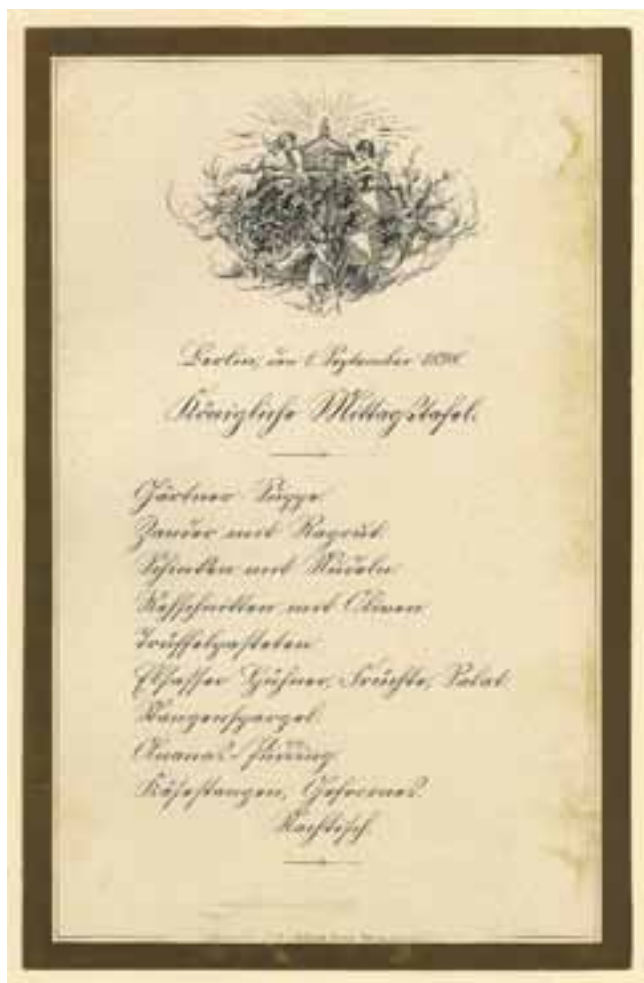 Berlin, den 1. September 1898.
Königliche Mittagstafel.
Gärtner-Suppe
Zander mit Ragout
Schinken mit Nudeln
Rehschnitten mit Oliven
Trüffelpasteten
Elsasser Hühner, Früchte, Salat
Stangenspargel
Ananas-Pudding
Käsestangen, Gefrornes
Nachtisch